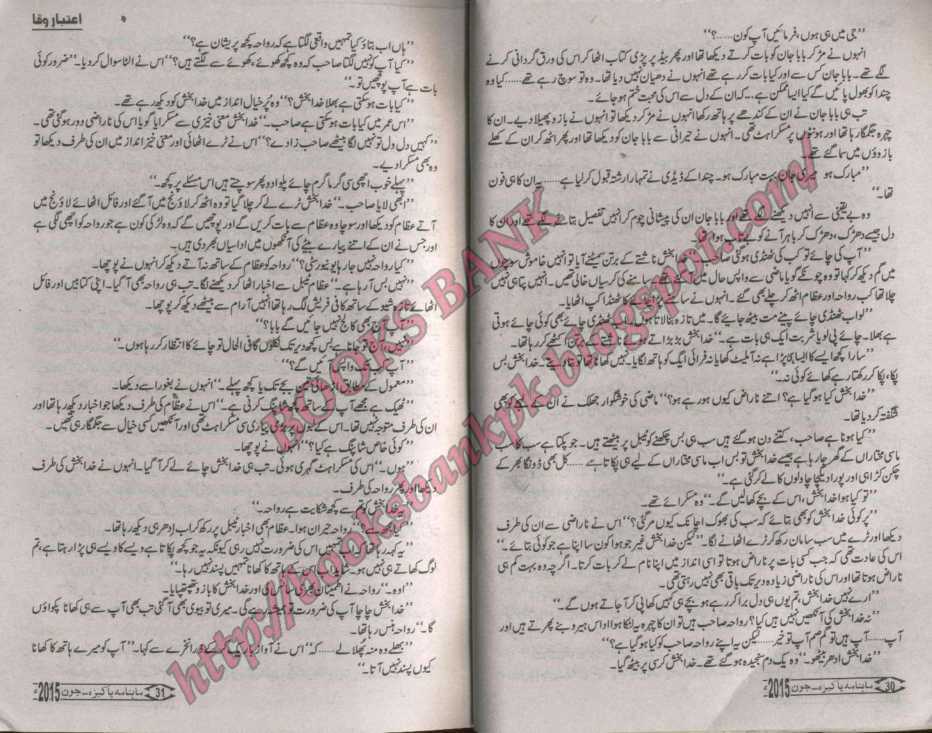 ’’جی میں ہی ہوں، فرمائیں آپ کون.....؟‘‘
انہوں نے مڑ کر بابا جان کو بات کرتے دیکھا تھا اور پھر بیڈ پر پڑی کتاب اٹھا کر اس کی ورق گردانی کرنے
لگے تھے۔ بابا جان کس سے اور کیا بات کر رہے تھے انہوں نے دھیان نہیں دیا تھا۔ وہ تو سوچ رہے تھے..... کیا وہ
چندا کو بھول پائیں گے کیا ایسا ممکن ہے... کہ ان کے دل سے اس کی محبت ختم ہو جائے۔
تب ہی بابا جان نے ان کے کندھے پر ہاتھ رکھا انہوں نے مڑ کر دیکھا تو انہوں نے بازو پھیلا دیے۔ ان کا
چہرہ جگمگا رہا تھا اور ہونٹوں پر مسکراہٹ تھی۔ انہوں نے حیرانی سے بابا جان کو دیکھا تھا اور پھر اٹھ کر ان کے کھلے
بازوؤں میں سما گئے تھے۔
’’مبارک ہو میری جان بہت مبارک ہو۔ چندا کے ڈیڈی نے تمہارا رشتہ قبول کر لیا ہے..... یہ ان کا ہی فون
تھا۔‘‘
وہ بے یقینی سے انہیں دیکھنے لگے تھے اور بابا جان ان کی پیشانی چوم کر انہیں تفصیل بتانے لگے تھے اور ان کا
دل جیسے دھڑک، دھڑک کر باہر آنے کو بے تاب ہوا تھا۔
’’آپ کی چائے تو کب کی ٹھنڈی ہو گئی صاحب۔‘‘ خدا بخش ناشتے کے برتن سمیٹنے آیا تو انہیں خاموش سوچوں
میں گم دیکھ کر کہا تو وہ چونکے گویا ماضی سے واپس حال میں آئے سامنے کی کرسیاں خالی تھیں۔ انہیں پتا ہی نہیں
چلا تھا کب رواحہ اور عظام اٹھ کر چلے بھی گئے۔ انہوں نے سامنے پڑا چائے کا ٹھنڈا کپ اٹھایا۔
’’لو اب ٹھنڈی چائے پینے مت بیٹھ جائیے گا۔ میں تازہ بنا لاتا ہوں۔ ٹھنڈی چائے بھی کوئی چائے ہوتی
ہے بھلا۔ چائے پی لو یا شربت ایک ہی بات ہے۔‘‘ خدا بخش بڑبڑاتے ہوئے ناشتے کے برتن اکٹھے کر رہا تھا۔
’’سارا کچھ ایسے کا ایسا ہی پڑا ہے نہ آملیٹ کھایا نہ فرائی انگ کو ہاتھ لگایا۔ نہیں کھانا تھا تو بتا دیتے۔ خدا بخش بس
پکا، پکا کر رکھتا رہے کھائے کوئی نہ۔‘‘
’’خدا بخش کیا ہو گیا ہے؟ اتنے ناراض کیوں ہو رہے ہو؟‘‘ ماضی کی خوشگوار جھلک نے ان کے لہجے کو بھی
شگفتہ کر دیا تھا۔
’’کیا ہونا ہے صاحب، کتنے دن ہو گئے ہیں سب ہی بس چکھنے کو ٹیبل پر بیٹھتے ہیں۔ جو پکتا ہے سب کا سب
ماسی مختاراں کے گھر جا رہا ہے جیسے خدا بخش تو بس اب ماسی مختاراں کے لیے ہی پکاتا ہے..... کل بھی ڈونگا بھر کے
چکن کڑاہی اور پورا دیگچا چاولوں کا لے کر گئی ہے۔‘‘
’’تو کیا ہوا خدا بخش، اس کے بچے کھا لیں گے۔‘‘ وہ مسکرائے تھے۔
’’پر کوئی خدا بخش کو بھی بتائے کہ سب کی بھوک اچانک کیوں مر گئی؟‘‘ اس نے ناراضی سے ان کی طرف
دیکھا اور ٹرے میں سب سامان رکھ کر ٹرے اٹھانے لگا۔ ’’لیکن خدا بخش غیر جو ہوا کون سا اپنا ہے جو کوئی بتائے۔‘‘
اس کی عادت تھی کہ جب کسی بات پر ناراض ہوتا تو اسی انداز میں اپنا نام لے کر بات کرتا۔ اگرچہ وہ بہت کم ہی
ناراض ہوتا تھا اور اس کی ناراضی زیادہ دیر تک باقی بھی نہیں رہتی تھی۔
’’ارے نہیں خدا بخش، تم یوں ہی دل برا کر رہے ہو بچے ہی نہیں کھا پی کر آ جاتے ہوں گے۔‘‘
’’نہ خدا بخش کی آنکھیں نہیں ہیں کیا؟ رواحہ صاحب ہیں تو ان کا چہرہ یہ لٹکا ہوا اداس ہیرو بنے پھرتے ہیں اور
آپ..... آپ ہیں تو گم صم آپ تو خیر..... لیکن یہ اپنے رواحہ صاحب کو کیا ہو گیا ہے؟‘‘
’’خدا بخش ادھر بیٹھو۔‘‘ وہ یک دم سنجیدہ ہو گئے تھے۔ خدا بخش کرسی پر بیٹھ گیا۔
ماہنامہ پاکیزہ۔ جون 2015ء 30
اعتبار وفا
’’ہاں اب بتاؤ کیا تمہیں واقعی لگتا ہے کہ رواحہ کچھ پریشان ہے؟‘‘
’’کیا آپ کو نہیں لگتا صاحب کہ وہ کچھ کھوئے، کھوئے سے لگتے ہیں؟‘‘ اس نے الٹا سوال کر دیا۔ ’’ضرور کوئی
بات ہے آپ پوچھیں تو۔‘‘
’’کیا بات ہو سکتی ہے بھلا خدا بخش؟‘‘ وہ پُر خیال انداز میں خدا بخش کو دیکھ رہے تھے۔
’’اس عمر میں کیا بات ہو سکتی ہے صاحب۔‘‘ خدا بخش معنی خیزی سے مسکرایا گویا اس کی ناراضی دور ہو گئی تھی۔
’’کہیں دل ول تو نہیں لگا بیٹھے صاحب زادے؟‘‘ اس نے ٹرے اٹھائی اور معنی خیز انداز میں ان کی طرف دیکھا تو
وہ بھی مسکرا دیے۔
’’پہلے خوب اچھی سی گرما گرم چائے پلوا دو پھر سوچتے ہیں اس مسئلے پر کچھ۔‘‘
’’ابھی لایا صاحب۔‘‘ خدا بخش ٹرے لے کر چلا گیا تو وہ اٹھ کر لاؤنج میں آ گئے اور فائل اٹھائے لاؤنج میں
آتے عظام کو دیکھا اور سوچا وہ عظام سے بات کریں گے اور پوچھیں گے کہ وہ لڑکی کون ہے جو رواحہ کو اچھی لگی ہے
اور جس نے ان کے اتنے پیارے بیٹے کی آنکھوں میں اداسیاں بھر دی ہیں۔
’’کیا رواحہ نہیں جا رہا یونیورسٹی؟‘‘ رواحہ کو عظام کے ساتھ نہ آتے دیکھ کر انہوں نے پوچھا۔
’’نہیں بس آ رہا ہے۔‘‘ عظام ٹیبل سے اخبار اٹھا کر دیکھنے لگا۔ تب ہی رواحہ بھی آ گیا۔ اپنی کتابیں اور فائل
اٹھائے تازہ شیو کے ساتھ کافی فریش لگ رہا تھا انہیں آرام سے بیٹھے دیکھ کر پوچھا۔
’’آپ آج بھی کالج نہیں جائیں گے بابا؟‘‘
’’نہیں، آج تو جانا ہے بس کچھ دیر تک نکلوں گا فی الحال تو چائے کا انتظار کر رہا ہوں۔‘‘
’’آپ کب تک واپس آئیں گے؟‘‘
’’معمول کے مطابق اڑھائی تین بجے تک یا کچھ پہلے۔‘‘ انہوں نے بغور اسے دیکھا۔
’’ٹھیک ہے مجھے آپ کے ساتھ کچھ شاپنگ کرنی ہے۔‘‘ اس نے عظام کی طرف دیکھا جو اخبار دیکھ رہا تھا اور
ان کی طرف متوجہ نہیں تھا۔ اس کے لبوں پر بڑی پیاری سی مسکراہٹ تھی اور آنکھیں کسی خیال سے جگمگا رہی تھیں۔
’’کوئی خاص شاپنگ ہے کیا؟‘‘ انہوں نے پوچھا۔
’’ہوں۔‘‘ اس کی مسکراہٹ گہری ہوئی۔ تب ہی خدا بخش چائے لے کر آ گیا۔ انہوں نے خدا بخش کی طرف
دیکھا اور پھر رواحہ کی طرف۔
’’خدا بخش کو تم سے کچھ شکایت ہے رواحہ۔‘‘
’’کیا؟‘‘ رواحہ حیران ہوا۔ عظام بھی اخبار ٹیبل پر رکھ کر اب ادھر ہی دیکھ رہا تھا۔
’’یہ کہہ رہا تھا کہ اب تمہیں اس کی ضرورت نہیں رہی کیونکہ یہ جو کچھ پکاتا ہے ویسے کا ویسے ہی پڑا رہتا ہے، تم
لوگ کھاتے ہی نہیں ہو۔ شاید اب اس کے ہاتھ کا کھانا تمہیں پسند نہیں رہا۔‘‘
’’اوہ۔‘‘ رواحہ نے اطمینان بھری سانس لی اور خدا بخش کا بازو تھپتھپایا۔
’’خدا بخش چاچا آپ کی ضرورت تو ہمیشہ رہے گی۔ میری تو بیوی بھی آ گئی تب بھی آپ سے ہی کھانا پکواؤں
گا۔‘‘ رواحہ ہنس رہا تھا۔
’’بھلے وہ منہ پھلا لے..... کہ‘‘ اس نے آواز باریک کر کے نخرے سے کہا۔ ’’آپ کو میرے ہاتھ کا کھانا
کیوں پسند نہیں آتا۔‘‘
ماہنامہ پاکیزہ۔ جون 2015ء 31
BOOKS BANK
http://booksbankpk.blogspot.com/